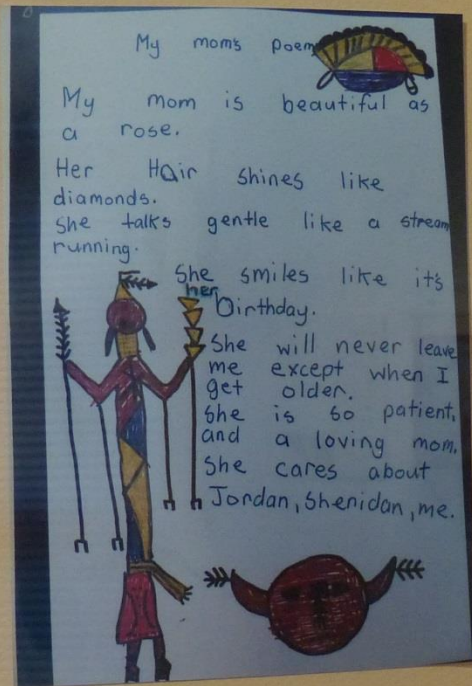 My mom's poem
My mom is beautiful as
a rose.
Her Hair shines like
diamonds.
She talks gentle like a stream
running.
She smiles like it's
her birthday.
She will never leave
me except when I
get older.
She is so patient,
and a loving mom.
She cares about
Jordan, Shenidan, me.